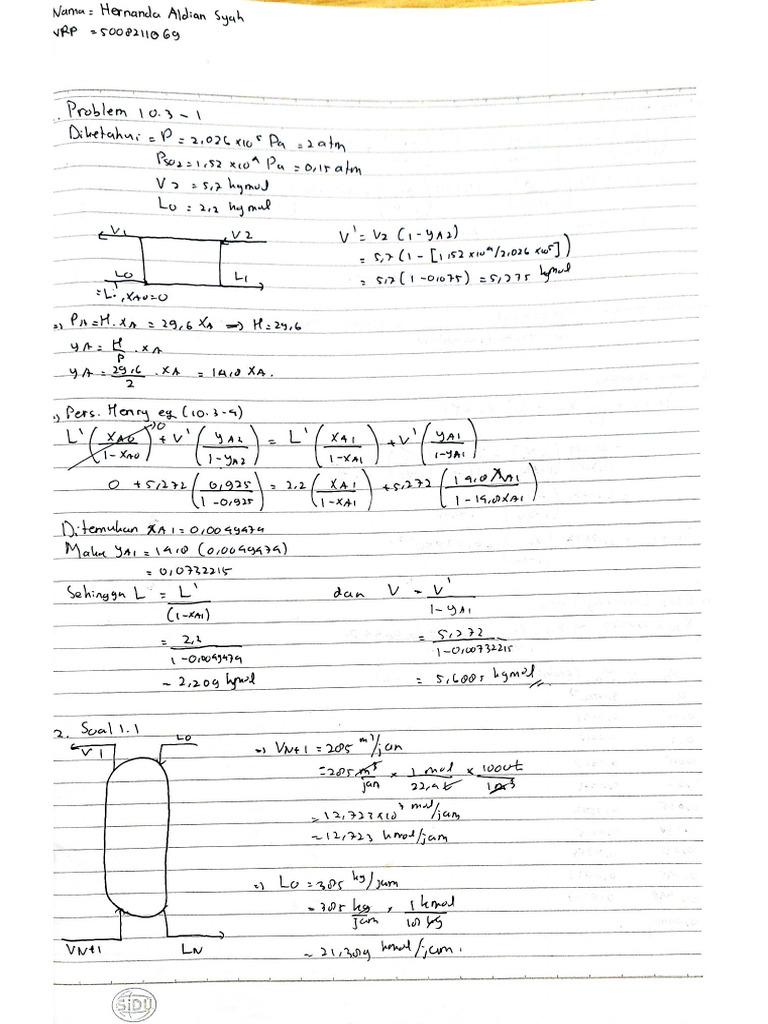 Nama = Hernanda Aldian Syah
NRP = 5008211069
Problem 10.3-1
Diketahui = P = 2,026 x10⁵ Pa = 2 atm
PSO2 = 1,52 x10⁴ Pa = 0,15 atm
V2 = 5,7 kgmol
L0 = 2,2 kgmol
V1
V2
L0
L1
= L', XA0=0
V' = V2 (1-yA2)
= 5,7 (1 - [1,52 x10⁴/2,026 x10⁵])
= 5,7 (1-0,075) = 5,275 kgmol
=) PA = H. XA = 29,6 XA => H = 29,6
yA = H/P . XA
yA = 29,6/2 . XA = 14,8 XA.
=) Pers. Henry eq (10.3-4)
L' (XA0/1-XA0) →0 + V' (yA2/1-yA2) = L' (XA1/1-XA1) + V' (yA1/1-yA1)
0 + 5,272 (0,925/1-0,925) = 2,2 (XA1/1-XA1) + 5,272 (14,8 XA1/1-14,8XA1)
Ditemukan XA1 = 0,0049474
Maka yA1 = 14,8 (0,0049474)
= 0,0732215
Sehingga L = L'/(1-XA1)
= 2,2/1-0,0049474
~ 2,209 kgmol
dan V = V'/1-yA1
= 5,272/1-0,00732215
= 5,6885 kgmol
2. Soal 1.1
V1
L0
VN+1
LN
=) VN+1 = 285 m³/jam
= 285 m³/jam x 1 mol/22,4 L x 1000L/1m³
= 12,723 x10³ mol/jam
= 12,723 kmol/jam
=) L0 = 385 kg/jam
= 385 kg/jam x 1 kmol/18 kg
~ 21,389 kmol/jam.
SIDU